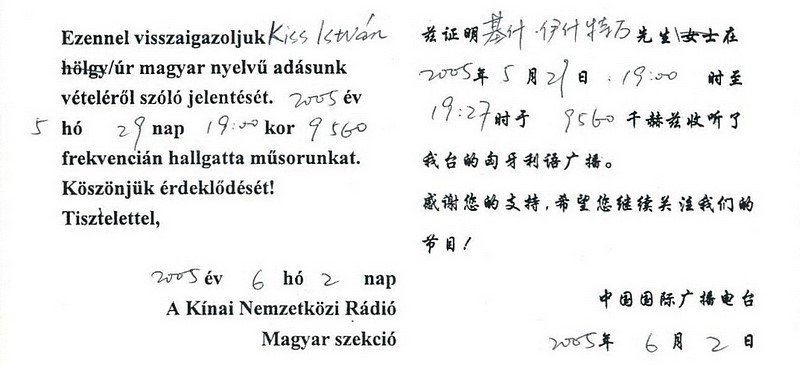 Ezennel visszaigazoljuk Kiss István
hölgy/úr magyar nyelvű adásunk
vételéről szóló jelentését. 2005 év
5 hó 29 nap 19:00 kor 9560
frekvencián hallgatta műsorunkat.
Köszönjük érdeklődését!
Tisztelettel,
2005 év 6 hó 2 nap
A Kínai Nemzetközi Rádió
Magyar szekció
兹证明基什·伊什特万先生\女士在
2005年5月29日:19:00时至
19:27时于9560千赫兹收听了
我台的匈牙利语广播。
感谢您的支持,希望您继续关注我们的
节目!
中国国际广播电台
2005年6月2日